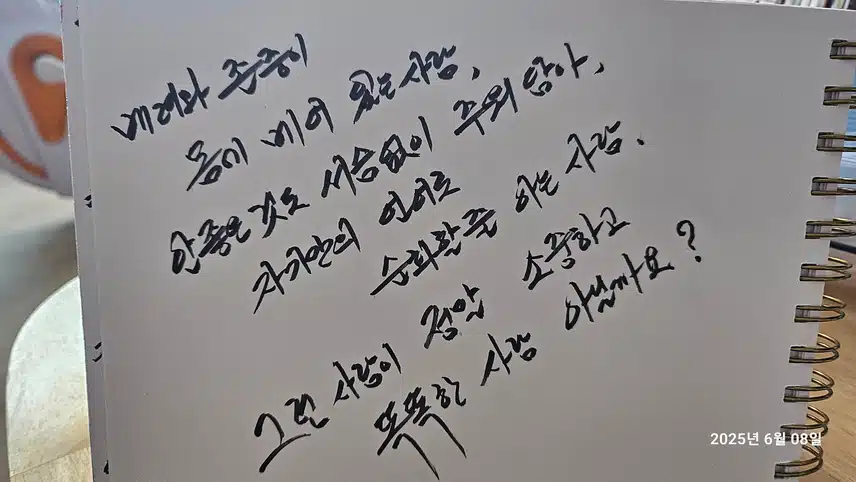 배려와 존중이
몸에 베어 있는 사람,
안좋은 것도 서슴없이 주워 담아,
자기만의 언어로
순화할줄 아는 사람.
그런 사람이 정말 소중하고
똑똑한 사람 아닐까요?
2025년 6월 08일